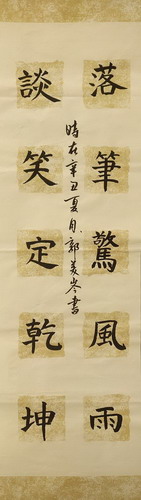 落筆驚風雨
談笑定乾坤
時在辛丑夏月郭美岑書